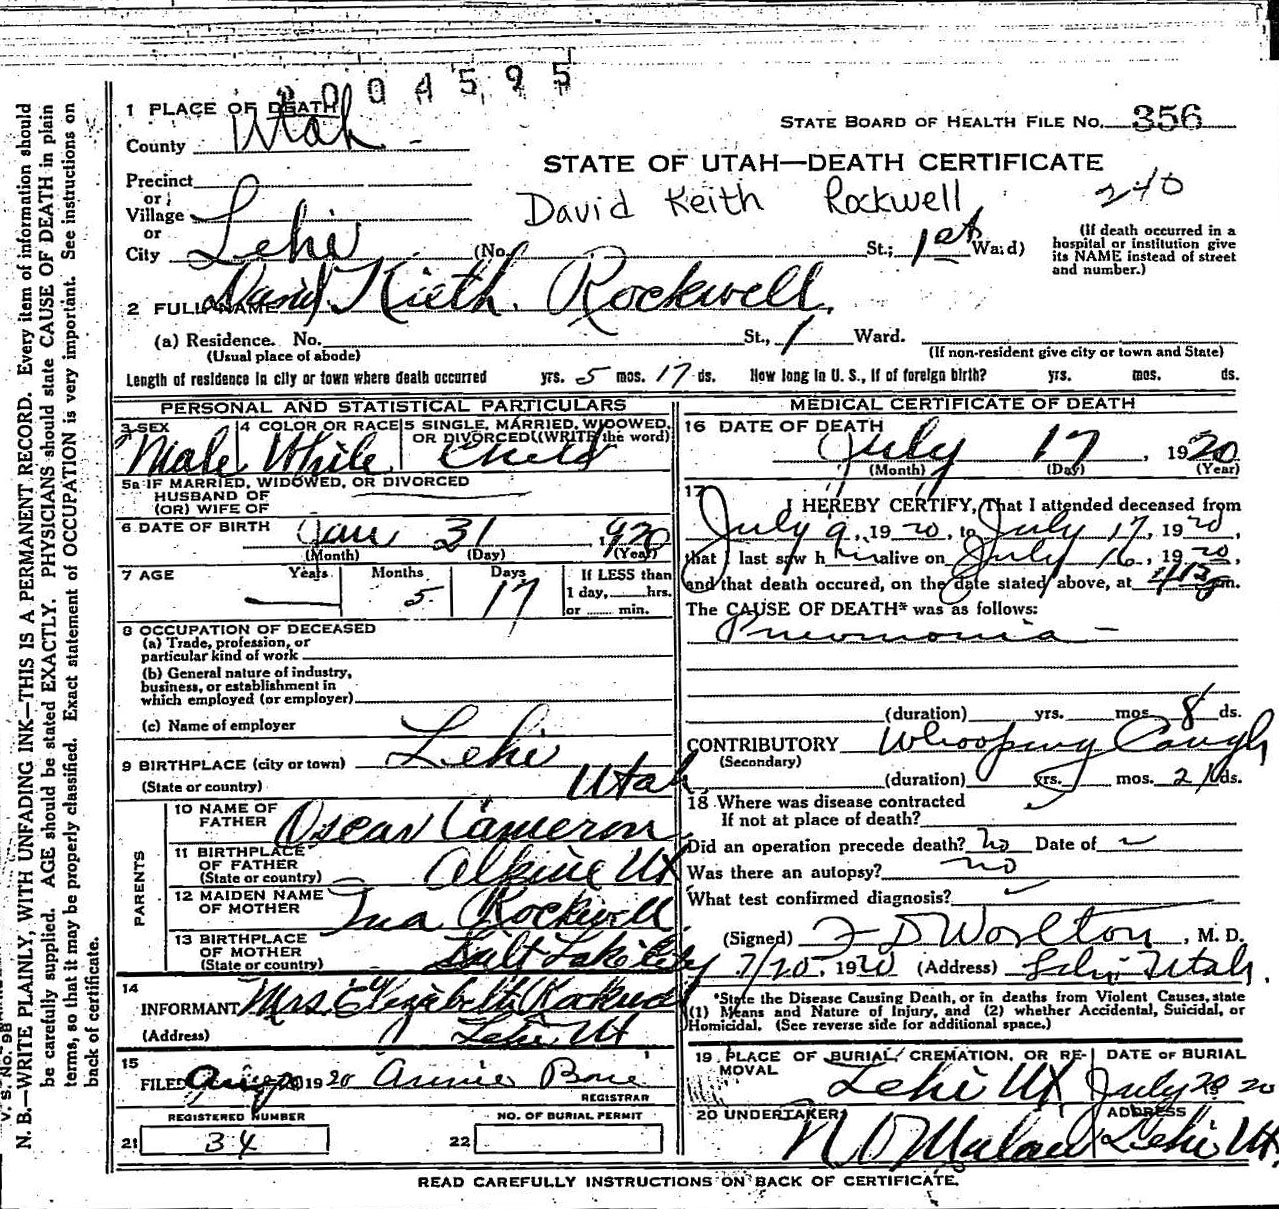 2004595
1 PLACE OF DEATH
County Utah
STATE BOARD OF HEALTH FILE NO. 356
STATE OF UTAH—DEATH CERTIFICATE
Precinct
or
Village
or
City Lehi (No. St.; 1st Ward)
David Keith Rockwell
240
(If death occurred in a
hospital or institution give
its NAME instead of street
and number.)
2 FULL NAME David Kieth Rockwell.
(a) Residence. No. St., 1 Ward.
(Usual place of abode) (If non-resident give city or town and State)
Length of residence in city or town where death occurred yrs. 5 mos. 17 ds. How long in U. S., if of foreign birth? yrs. mos. ds.
PERSONAL AND STATISTICAL PARTICULARS
3 SEX Male
4 COLOR OR RACE White
5 SINGLE, MARRIED, WIDOWED,
OR DIVORCED (WRITE the word) Child
5a IF MARRIED, WIDOWED, OR DIVORCED
HUSBAND OF
(OR) WIFE OF
6 DATE OF BIRTH Jan 31 1920
(Month) (Day) (Year)
7 AGE Years Months 5 Days 17
If LESS than
1 day, hrs.
or min.
8 OCCUPATION OF DECEASED
(a) Trade, profession, or
particular kind of work
(b) General nature of industry,
business, or establishment in
which employed (or employer)
(c) Name of employer
9 BIRTHPLACE (city or town) Lehi
(State or country) Utah
PARENTS
10 NAME OF
FATHER Oscar Cameron
11 BIRTHPLACE
OF FATHER
(State or country) Alpine Ut
12 MAIDEN NAME
OF MOTHER Ina Rockwell
13 BIRTHPLACE
OF MOTHER
(State or country) Salt Lake City
14
INFORMANT Mrs. Elizabeth Rockwell
(Address) Lehi Ut
15
FILED Aug 1920 Annie Bone
REGISTRAR
REGISTERED NUMBER
21 34
NO. OF BURIAL PERMIT
22
MEDICAL CERTIFICATE OF DEATH
16 DATE OF DEATH
July 17, 1920
(Month) (Day) (Year)
17
I HEREBY CERTIFY, That I attended deceased from
July 9, 1920, to July 17, 1920,
that I last saw him alive on July 16, 1920,
and that death occured, on the date stated above, at m.
The CAUSE OF DEATH* was as follows:
Pneumonia
(duration) yrs. mos. 8 ds.
CONTRIBUTORY Whooping Cough
(Secondary)
(duration) yrs. mos. 21 ds.
18 Where was disease contracted
If not at place of death?
Did an operation precede death? no Date of
Was there an autopsy? no
What test confirmed diagnosis?
(Signed) F D Worlton, M. D.
7/20, 1920 (Address) Lehi Utah.
*State the Disease Causing Death, or in deaths from Violent Causes, state
(1) Means and Nature of Injury, and (2) whether Accidental, Suicidal, or
Homicidal. (See reverse side for additional space.)
19 PLACE OF BURIAL, CREMATION, OR RE-
MOVAL
Lehi Ut
DATE OF BURIAL
July 20
20 UNDERTAKER
N O Malan
ADDRESS
Lehi Ut.
READ CAREFULLY INSTRUCTIONS ON BACK OF CERTIFICATE.
V. S. No. 9B
N. B.—WRITE PLAINLY, WITH UNFADING INK—THIS IS A PERMANENT RECORD. Every item of information should
be carefully supplied. AGE should be stated EXACTLY. PHYSICIANS should state CAUSE OF DEATH in plain
terms, so that it may be properly classified. Exact statement of OCCUPATION is very important. See instructions on
back of certificate.